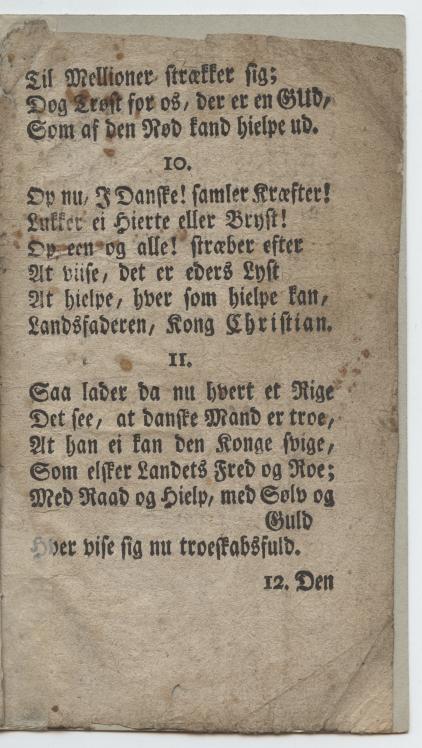 Til Mellioner strækker sig;
Dog Trøst for os, der er en GUd,
Som af den Nød kand hielpe ud.
10.
Op nu, I Danske! samler Kræfter!
Lukker ei Hierte eller Bryst!
Op een og alle! stræber efter
At viise, det er eders Lyst
At hielpe, hver som hielpe kan,
Landsfaderen, Kong Christian.
11.
Saa lader da nu hvert et Rige
Det see, at danske Mand er troe,
At han ei kan den Konge svige,
Som elsker Landets Fred og Roe;
Med Raad og Hielp, med Sølv og
Guld
Hver vise sig nu troeskabsfuld.
12. Den